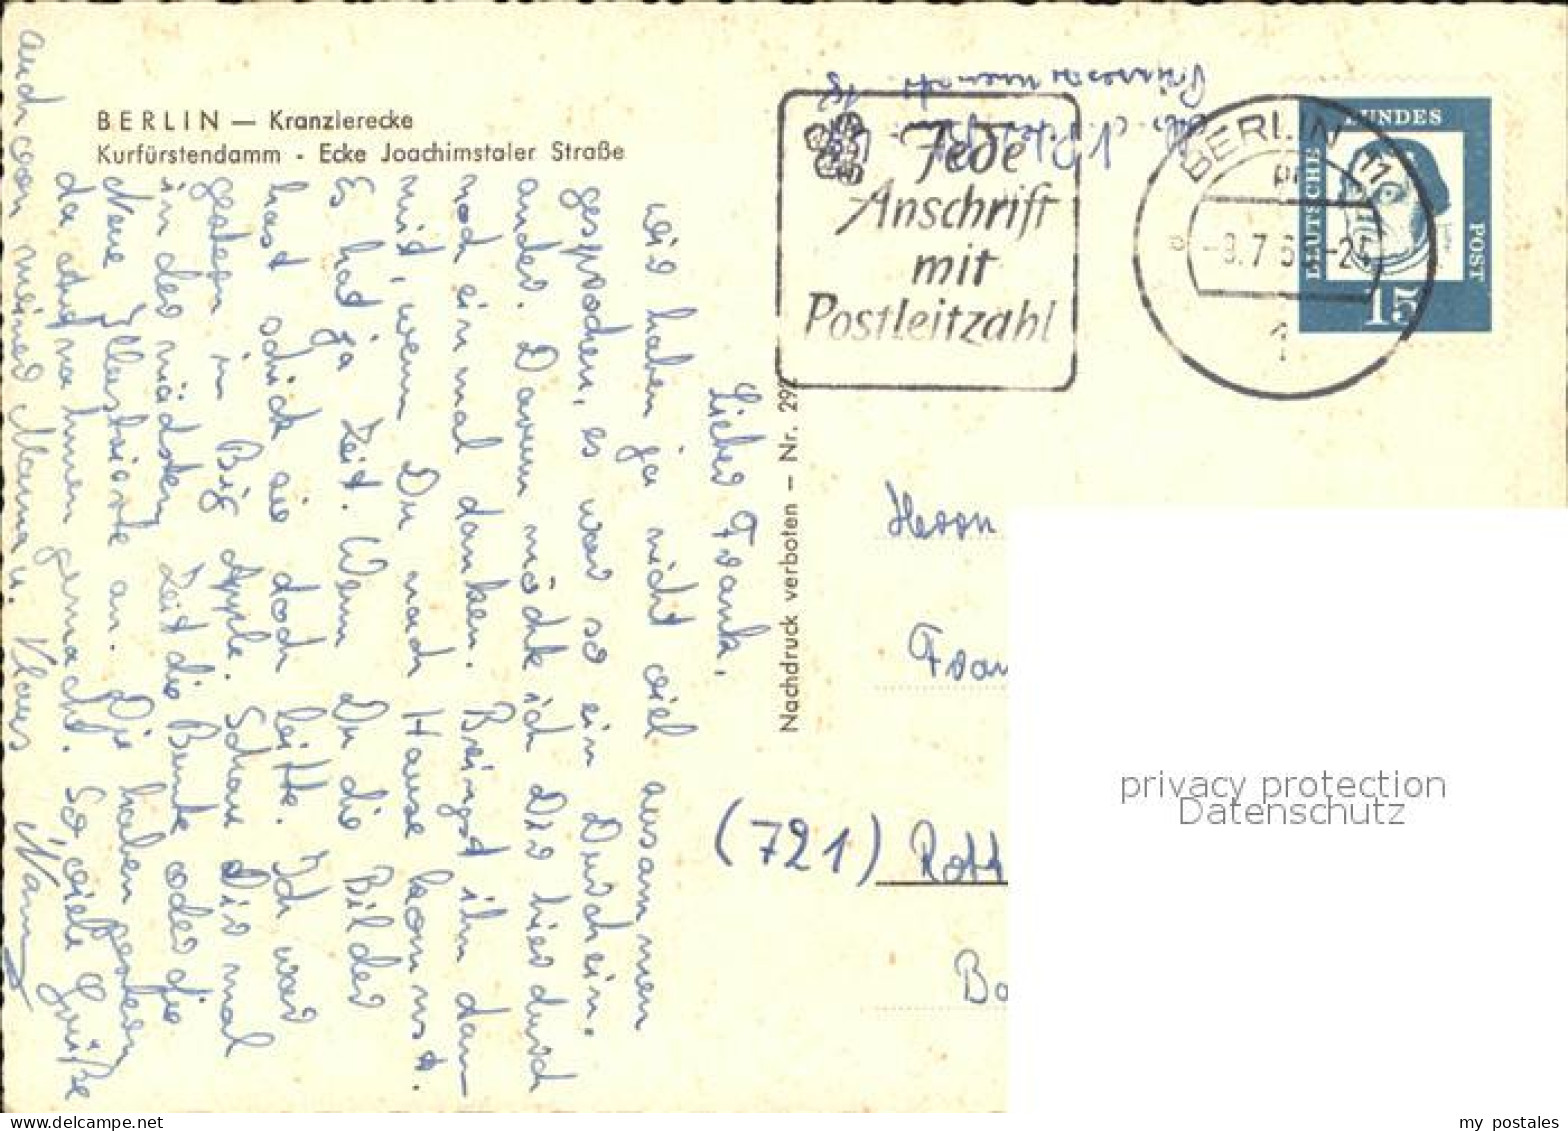 BERLIN — Kranzlerecke
Kurfürstendamm - Ecke Joachimstaler Straße
Jede
Anschrift
mit
Postleitzahl
BERLIN 11
-8.7.6 -24
1
DEUTSCHE
BUNDES
POST
15
Nachdruck verboten — Nr. 29
Lieber Frank,
wir haben ja nicht viel zusammen
gesprochen, es war so ein Durchein.
ander. Darum möchte ich Dir hier durch
noch einmal danken. Bringst ihn dann
mit, wenn Du nach Hause kommst.
Es hat ja Zeit. Wenn Du die Bilder
hast schick sie doch bitte. Ich war
gestern in Big Apple. Schau Dir mal
in der nächsten Zeit die Bunte oder die
Neue Illustrierte an. Die haben gestern
da Aufnahmen gemacht. So, viele Grüße
auch von meiner Mama u. Klaus
Herrn
Fran
(721) Rott
privacy protection
Datenschutz
my postales